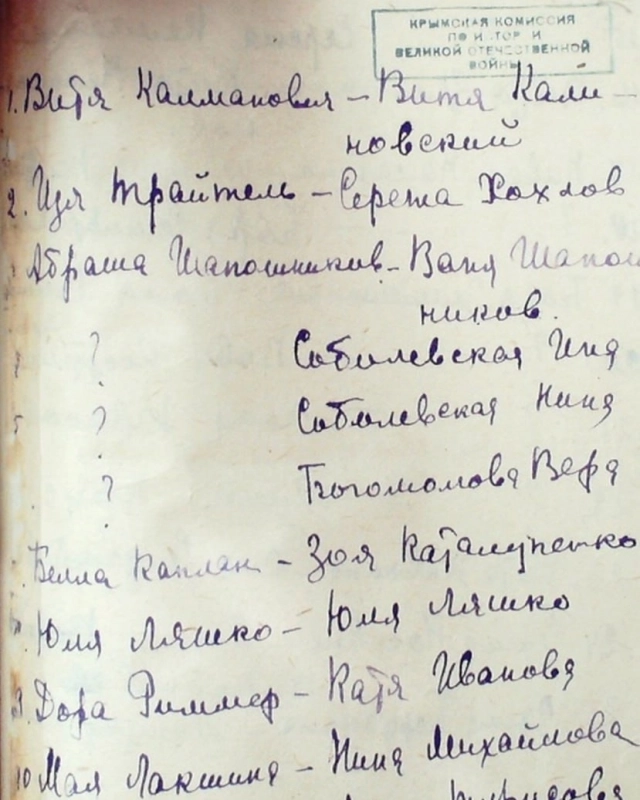 КРЫМСКАЯ КОМИССИЯ
ПО ИСТОР И
ВЕЛИКОЙ ОТЕЧЕСТВЕННОЙ
ВОЙНЫ
1. Витя Калманович – Витя Кали–
новский
2. Изя Трайтель – Сережа Хохлов
Абраша Шапошников – Ваня Шапош
ников.
? Соболевская Инд
5 ? Соболевская Нина
? Богомолова Вера
Белла Каплан – Зоя Каталупенко
Юля Ляшко – Юля Ляшко
9. Дора Риммер – Катя Иванова
10 Мая Лакшина – Нина Михайлова